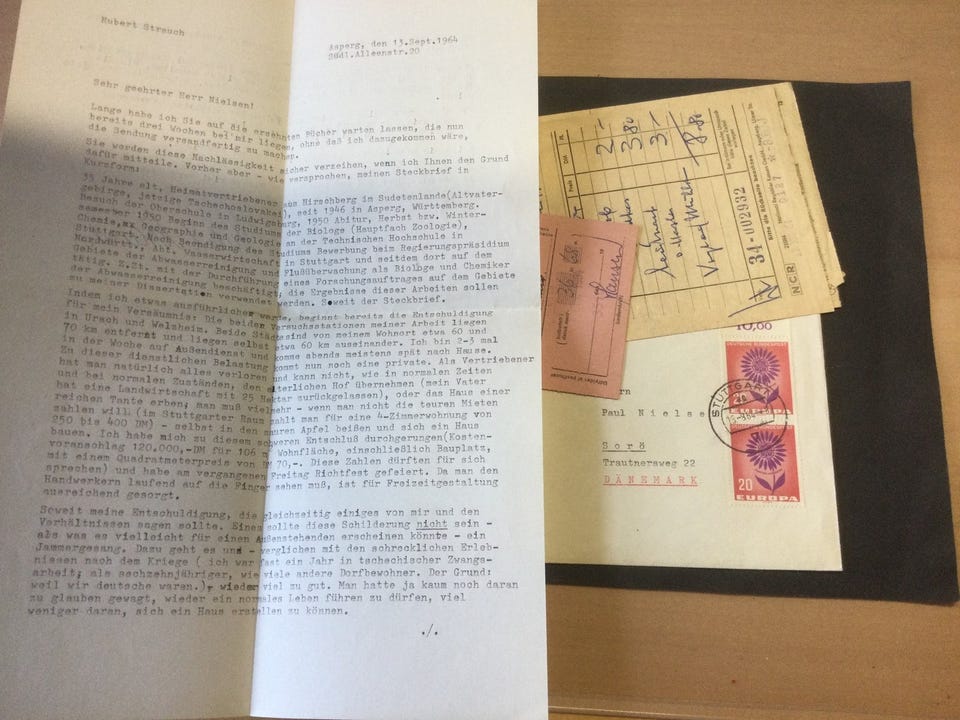 Hubert Strauch
Asperg, den 13.Sept.1964
Südl.Alleenstr.20
Sehr geehrter Herr Nielsen!
Lange habe ich Sie auf die ersehnten Bücher warten lassen, die nun
bereits drei Wochen bei mir liegen, ohne daß ich dazugekommen wäre,
die Sendung versandfertig zu machen.
Sie werden diese Nachlässigkeit sicher verzeihen, wenn ich Ihnen den Grund
dafür mitteile. Vorher aber - wie versprochen, meinen Steckbrief in
Kurzform:
35 Jahre alt, Heimatvertriebener aus Hirschberg im Sudetenlande(Altvater-
gebirge, jetzige Tschechoslowakei), seit 1946 in Asperg, Württemberg.
Besuch der Oberschule in Ludwigsburg, 1950 Abitur, Herbst bzw. Winter-
semester 1950 Beginn des Studiums der Biologe (Hauptfach Zoologie),
Chemie, Geographie und Geologie an der Technischen Hochschule in
Stuttgart. Nach Beendigung des Studiums Bewerbung beim Regierungspräsidium
Nordwürtt., Abt. Wasserwirtschaft in Stuttgart und seitdem dort auf dem
Gebiete der Abwasserreinigung und Flußüberwachung als Biologe und Chemiker
tätig. Z.Zt. mit der Durchführung eines Forschungsauftrages auf dem Gebiete
der Abwasserreinigung beschäftigt; die Ergebnisse dieser Arbeiten sollen
zu meiner Dissertation verwendet werden. Soweit der Steckbrief.
Indem ich etwas ausführlicher werde, beginnt bereits die Entschuldigung
für mein Versäumnis: Die beiden Versuchsstationen meiner Arbeit liegen
in Urach und Welzheim. Beide Städte sind von meinem Wohnort etwa 60 und
70 km entfernt und liegen selbst etwa 60 km auseinander. Ich bin 2-3 mal
in der Woche auf Außendienst und komme abends meistens spät nach Hause.
Zu dieser dienstlichen Belastung kommt nun noch eine private. Als Vertriebener
hat man natürlich alles verloren und kann nicht, wie in normalen Zeiten
und bei normalen Zuständen, den elterlichen Hof übernehmen (mein Vater
hat eine Landwirtschaft mit 25 Hektar zurückgelassen), oder das Haus einer
reichen Tante erben; man muß vielmehr - wenn man nicht die teuren Mieten
zahlen will (im Stuttgarter Raum zahlt man für eine 4-Zimmerwohnung von
250 bis 400 DM) - selbst in den sauren Apfel beißen und sich ein Haus
bauen. Ich habe mich zu diesem schweren Entschluß durchgerungen(Kosten-
voranschlag 120.000,-DM für 106 m Wohnfläche, einschließlich Bauplatz,
mit einem Quadratmeterpreis von DM 70,-. Diese Zahlen dürften für sich
sprechen) und habe am vergangenen Freitag Richtfest gefeiert. Da man den
Handwerkern laufend auf die Finger sehen muß, ist für Freizeitgestaltung
ausreichend gesorgt.
Soweit meine Entschuldigung, die gleichzeitig einiges von mir und den
Verhältnissen sagen sollte. Eines sollte diese Schilderung nicht sein -
als was es vielleicht für einen Außenstehenden erscheinen könnte - ein
Jammergesang. Dazu geht es uns - verglichen mit den schrecklichen Erleb-
nissen nach dem Kriege ( ich war fast ein Jahr in tschechischer Zwangs-
arbeit, als sechzehnjähriger, wie viele andere Dorfbewohner. Der Grund:
weil wir deutsche waren.), wieder viel zu gut. Man hatte ja kaum noch daran
zu glauben gewagt, wieder ein normales Leben führen zu dürfen, viel
weniger daran, sich ein Haus erstellen zu können.
./.
2-
3-
34-002932
NCR
10,00
DEUTSCHE BUNDESPOST
EUROPA
STUTTGART
DEUTSCHE BUNDESPOST
20
EUROPA
Paul Nielse
Sorö
Trautnersweg 22
DÄNEMARK